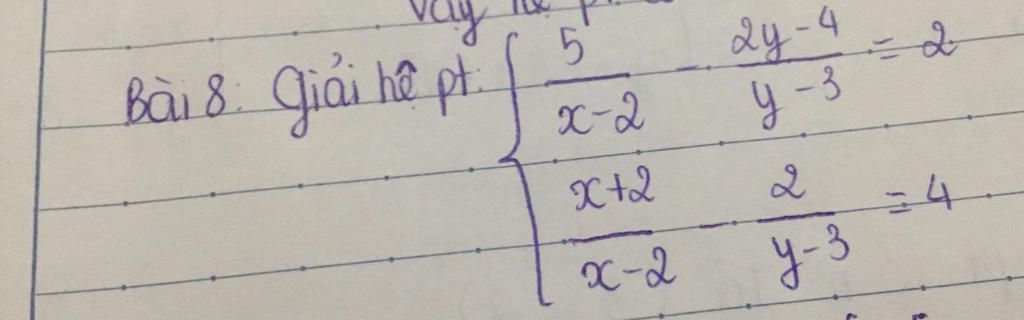 Bài 8: Giải hệ pt: { 5/(x-2) - (2y-4)/(y-3) = 2
(x+2)/(x-2) - 2/(y-3) = 4